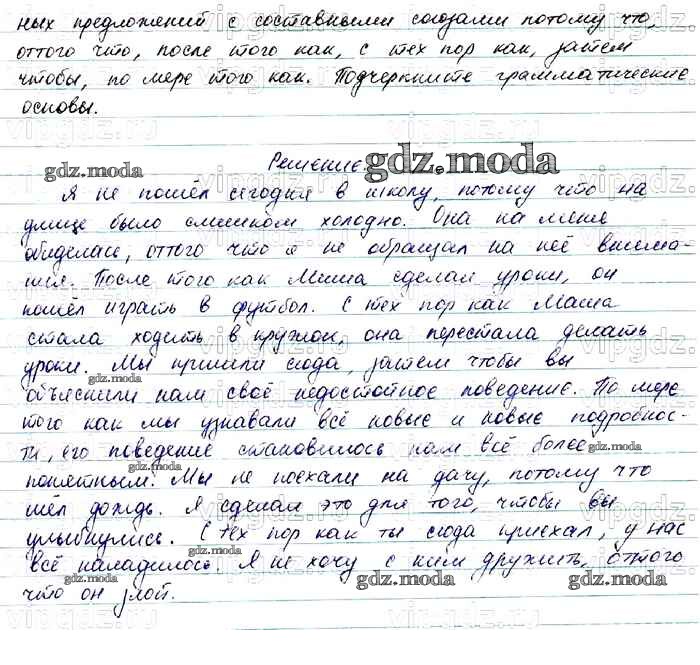 ных предложений с составными союзами потому что,
оттого что, после того как, с тех пор как, затем
чтобы, по мере того как. Подчеркните грамматические
основы.
Решение. gdz.moda
gdz.moda
Я не пошёл сегодня в школу, потому что на
улице было слишком холодно. Она на меня
обиделась, оттого что я не обращал на неё внима-
ния. После того как Миша сделал уроки, он
пошёл играть в футбол. С тех пор как Маша
стала ходить в кружок, она перестала делать
уроки. Мы пришли сюда, затем чтобы вы
gdz.moda
gdz.moda
объяснили нам своё недостойное поведение. По мере
того как мы узнавали всё новые и новые подробнос-
ти, его поведение становилось нам всё более
gdz.moda
gdz.moda
понятным. Мы не поехали на дачу, потому что
шёл дождь. Я сделал это для того, чтобы вы
gdz.moda
улыбнулись. С тех пор как ты сюда приехал, у нас
gdz.moda
всё наладилось. Я не хочу с ним дружить, оттого
gdz.moda
gdz.moda
gdz.moda
что он злой.